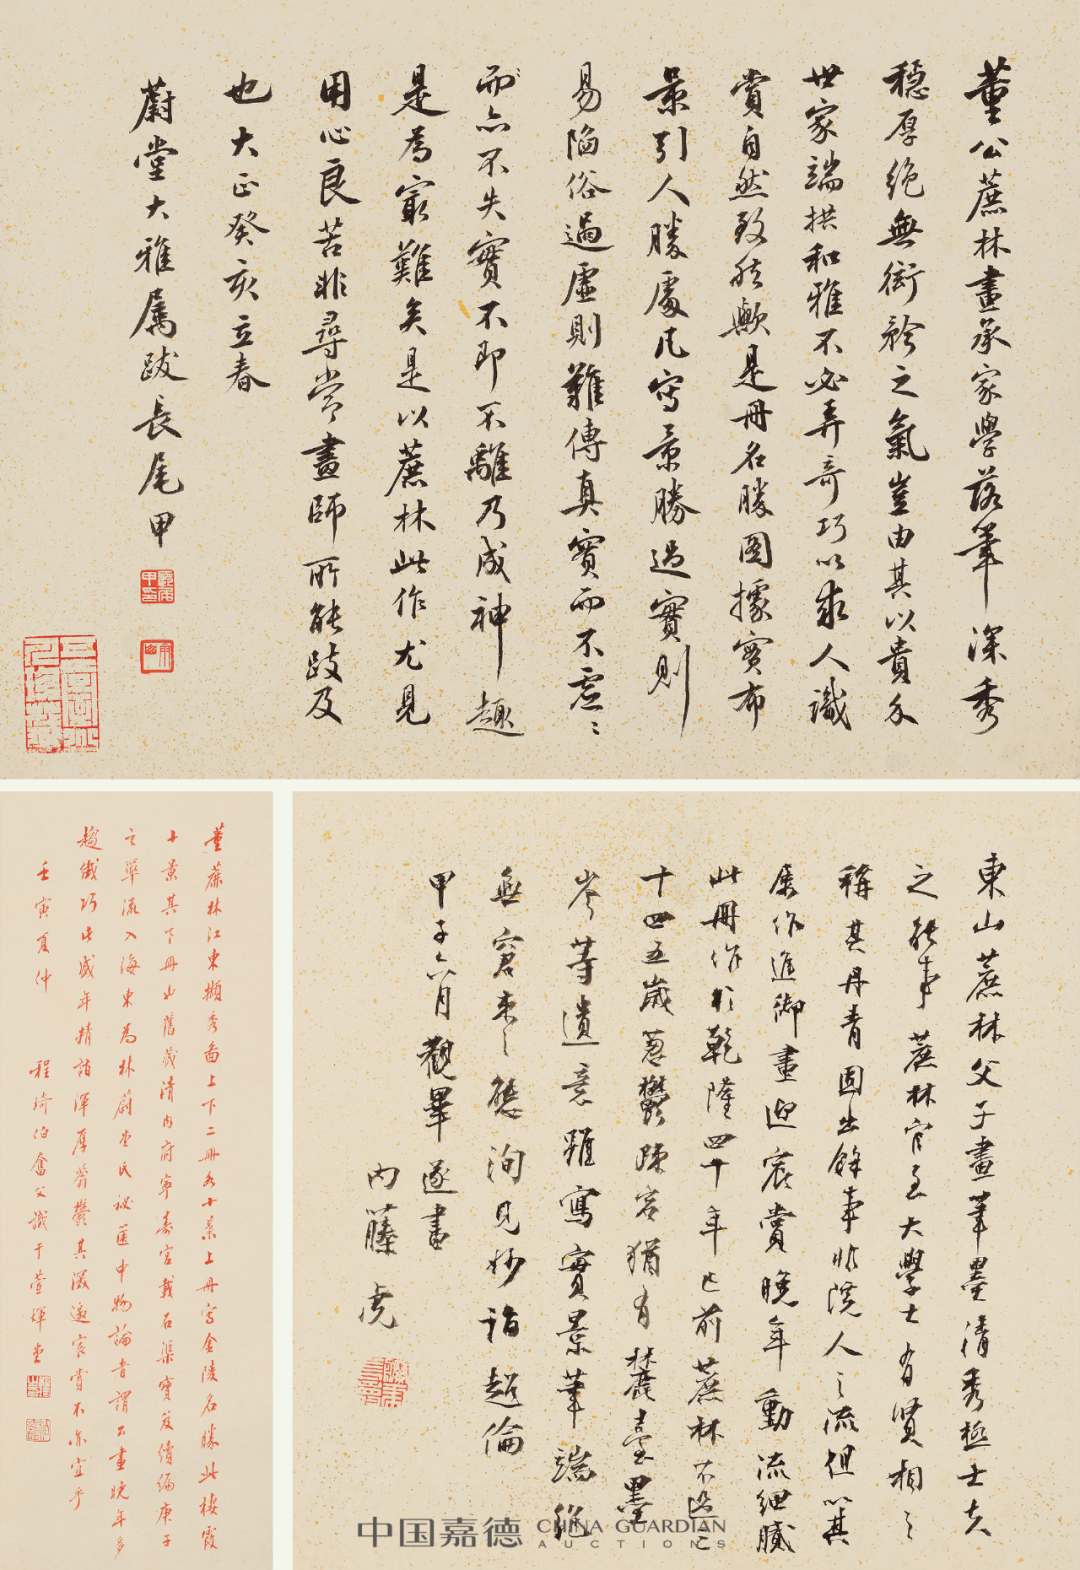 董公蔗林畫承家學落筆深秀
穩厚絶無衒矜之氣豈由其以貴介
世家端拱和雅不必弄奇巧以求人識
賞自然致然歟是冊名勝圖據實布
景引人勝處凡寫景勝過實則
易陷俗過虛則難傳真實而不虛〻
而亦不失實不即不離乃成神趣
是為最難矣是以蔗林此作尤見
用心良苦非尋常畫師所能跂及
也大正癸亥立春
蔚堂大雅屬跋長尾甲
東山蔗林父子畫筆墨清秀極士夫
之能事蔗林官至大學士有賢相之
稱其丹青固出餘事非院人之流但以其
屢作進御畫迎宸賞晚年動流細膩
此冊作於乾隆四十年已前蔗林不過三
十四五歲蔥鬱疎宕猶有麓臺墨
岑等遺意雖寫實景筆端絶
無窘束之態洵見妙詣超倫
甲子六月觀畢遂書
內藤虎
董蔗林江東擷秀圖上下二冊各十景上冊寫金陵名勝此棲霞
十景其下冊也舊藏清內府寧壽宮載石渠寶笈續編庚子
之舉流入海東為林蔚堂氏祕匧中物論者謂公畫晚年多
趨纖巧此盛年精詣渾厚蒼鬱其激邀宸賞不亦宜乎
壬寅夏仲 程琦伯奮父識于萱暉堂
中国嘉德 CHINA GUARDIAN
AUCTIONS